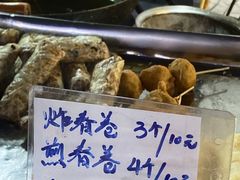 炸春卷 3个/10元
煎春卷 4个/10元